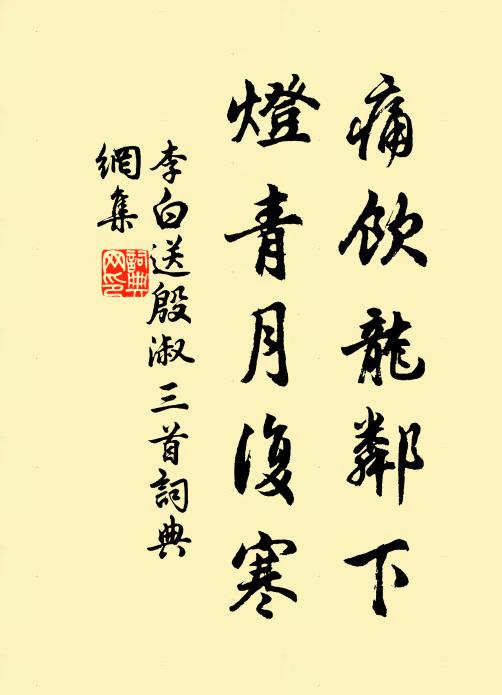 痛飲龍鄰下
燈青月復寒
李白送殷淑三首詞典
網集
詞典
网印